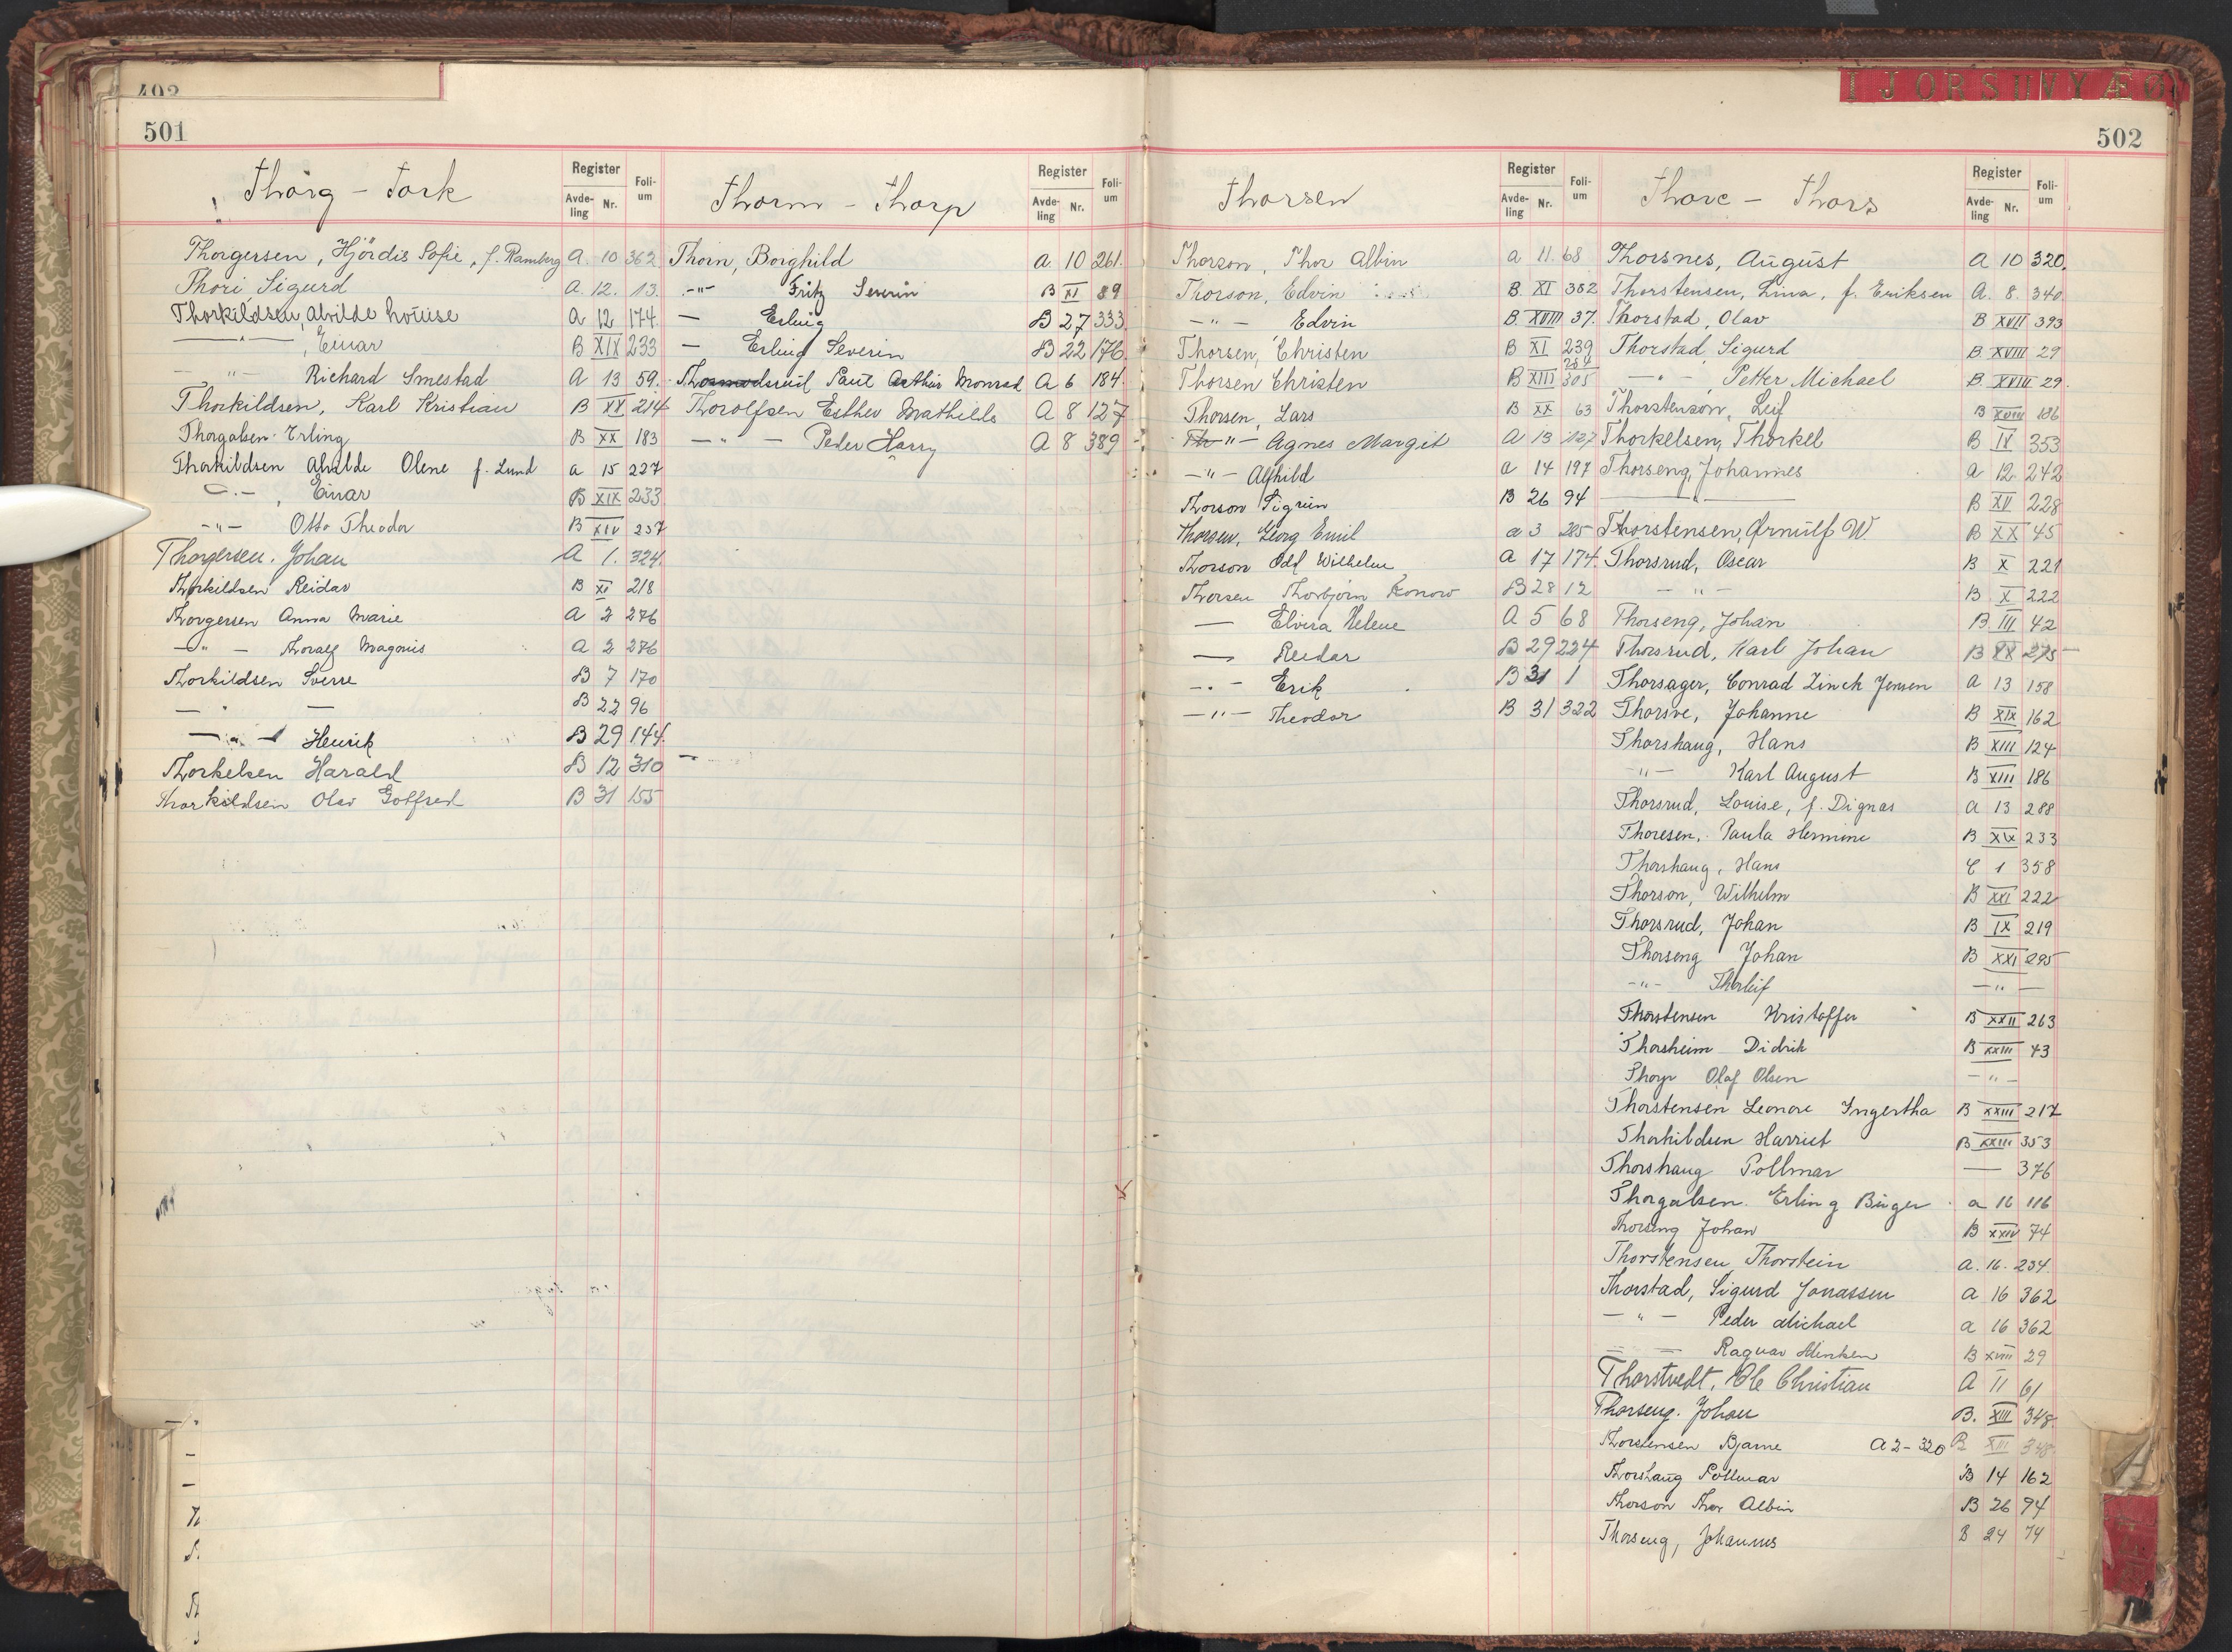 402
501
Thorg - Tork
Register
Avdeling
Nr.
Folium
Thorgersen, Hjördis Sofie, f. Ramberg A. 10 362
Thori Sigurd A. 12. 13.
Thorkildsen, Alvilde Louise A 12 174.
—"— , Einar B XIX 233
—"— Richard Smestad A 13 59.
Thorkildsen, Karl Kristian B XV 214
Thorgalsen Erling B XX 183
Thorkildsen Alvilde Olene f. Lund a 15 227
—"— , Einar B XIX 233
—"— Otto Theodor B XIV 237
Thorgersen. Johan A 1. 324.
Thorkildsen Reidar B XI 218
Thorgersen Anna Marie A 2 276
—"— Thoralf Magnus A 2 276
Thorkildsen Sverre B 7 170
—"— — B 22 96
—"— Henrik B 29 144.
Thorkelsen Harald B 12 310
Thorkildsen Olav Gotfred B 31 155
Thorm - Thorp
Register
Avdeling
Nr.
Folium
Thorn, Borghild a. 10 261.
—"— Fritz Severin B XI 89
— Erling B 27 333
— Erling Severin B 22 176.
Thormodsrud Paul Arthur Monrad A 6 184.
Thorolfsen Esther Mathilde A 8 127
—"— Peder Harry A 8 389
I J O R S U V Y Æ Ø
502
Thorsen
Register
Avdeling
Nr.
Folium
Thorson, Thor Albin a 11 68
Thorson, Edvin B. XI 302
—"— Edvin B. XVIII 37.
Thorsen, Christen B XI 239
Thorsen Christen B XIII 254 305
Thorsen, Lars B XX 63
Th —"— Agnes Margit A 13 127
—"— Alfhild a 14 197
Thorson Sigrun B 26 94
Thorsen, Georg Emil a 3 285
Thorson Odd Wilhelm a 17 174.
Thorsen Thorbjørn Konow B 28 12
— Elvira Helene A 5 68
— Reidar B 29 224
—"— Erik B 31 1
—"— Theodor B 31 322
Thorc - Thors
Register
Avdeling
Nr.
Folium
Thorsnes, August A 10 320.
Thorstensen, Lina, f. Eriksen A. 8. 340.
Thorstad, Olav B XVII 393
Thorstad, Sigurd B XVIII 29
—"— , Petter Michael B XVIII 29.
Thorstenson, Leif B XVIII 186
Thorkelsen, Thorkel B IV 353
Thorseng, Johannes a 12 242
—"— B XV 228
Thorstensen, Ørnulf W. B XX 45
Thorsrud, Oscar B X 221
—"— B X 222
Thorseng, Johan B. III 42
Thorsrud, Karl Johan B XX 275
Thorsager, Conrad Zinck Jensen A 13 158
Thorsve, Johanne B XIX 162
Thorshaug, Hans B XIII 124
—"— Karl August B XIII 186
Thorsrud, Louise, f. Dignas a 13 288
Thoresen, Paula Hermine B XIX 233
Thorshaug, Hans C 1 358
Thorson, Wilhelm B XXI 222
Thorsrud, Johan B IX 219
Thorseng Johan B XXI 295
—"— Thorleif —"—
Thorstensen Kristoffer B XXII 263
Thorsheim Didrik B XXIII 43
Thorp Olaf Olsen —"—
Thorstensen Leonore Ingertha B XXIII 217
Thorkildsen Harriet B XXIII 353
Thorshaug Pollmar — 376
Thorgalsen. Erling Birger a 16 116
Thorseng Johan B XXIV 74
Thorstensen Thorstein a. 16. 234.
Thorstad, Sigurd Jonassen a 16 362
—"— Peder Michael a 16 362
— — Ragnar B XVIII 29
Thorstvedt, Ole Christian A 11 61
Thorseng. Johan B. XIII 348.
Thorstensen Bjarne A 2-320 B XIII 348
Thorshaug Pollmar B 14 162
Thorson Thor Albin B 26 94
Thorseng, Johannes B 24 74